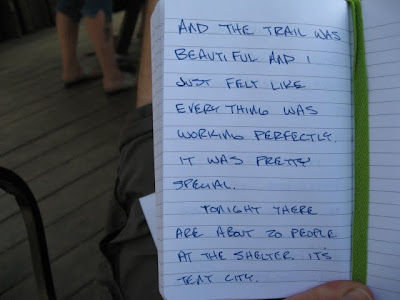 AND THE TRAIL WAS
BEAUTIFUL AND I
JUST FELT LIKE
EVERYTHING WAS
WORKING PERFECTLY.
IT WAS PRETTY
SPECIAL.
TONIGHT THERE
ARE ABOUT 20 PEOPLE
AT THE SHELTER. IT'S
TENT CITY.